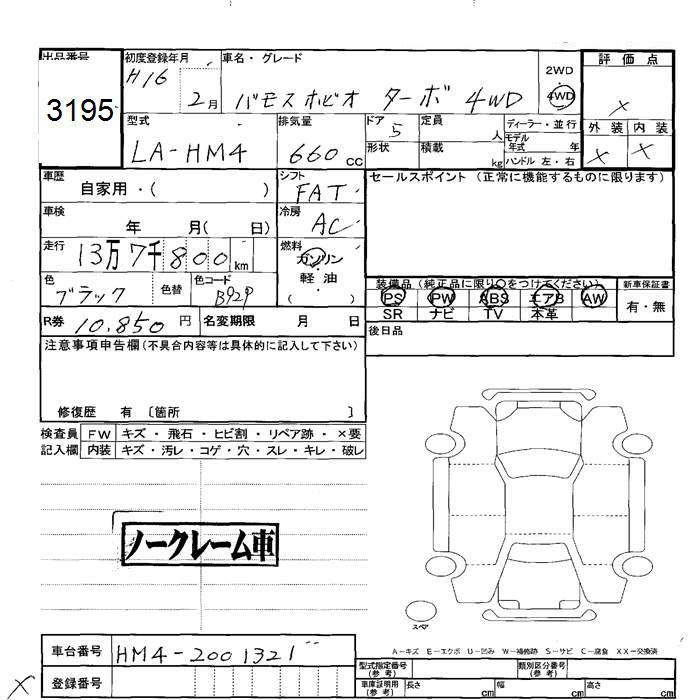 出品番号
3195
初度登録年月
H16 2月
車名・グレード
バモスホビオ ターボ 4WD
2WD
4WD
評価点
×
外装 内装
× ×
型式
LA-HM4
排気量
660 cc
ドア 5
形状
定員 人
積載 kg
ディーラー・並行
モデル年式 年
ハンドル 左・右
車歴
自家用・( )
シフト
FAT
セールスポイント (正常に機能するものに限ります)
車検
年 月( 日)
冷房
AC
走行
13万7千800km
燃料
ガソリン
軽油
( )
色
ブラック
色替
色コード
B92P
装備品 (純正品に限り○をつけてください)
PS PW ABS エアB AW
SR ナビ TV 本革
新車保証書
有・無
R券 10,850円
名変期限 月 日
後日品
注意事項申告欄(不具合内容等は具体的に記入して下さい)
修復歴 有 〔箇所 〕
検査員 FW キズ・飛石・ヒビ割・リペア跡・×要
記入欄 内装 キズ・汚レ・コゲ・穴・スレ・キレ・破レ
ノークレーム車
スペア
A−キズ E−エクボ U−凹み W−補修跡 S−サビ C−腐食 XX−交換済
車台番号
HM4-2001321
登録番号
×
型式指定番号 (参考)
類別区分番号 (参考)
車庫証明用 (参考) 長さ cm 幅 cm 高さ cm